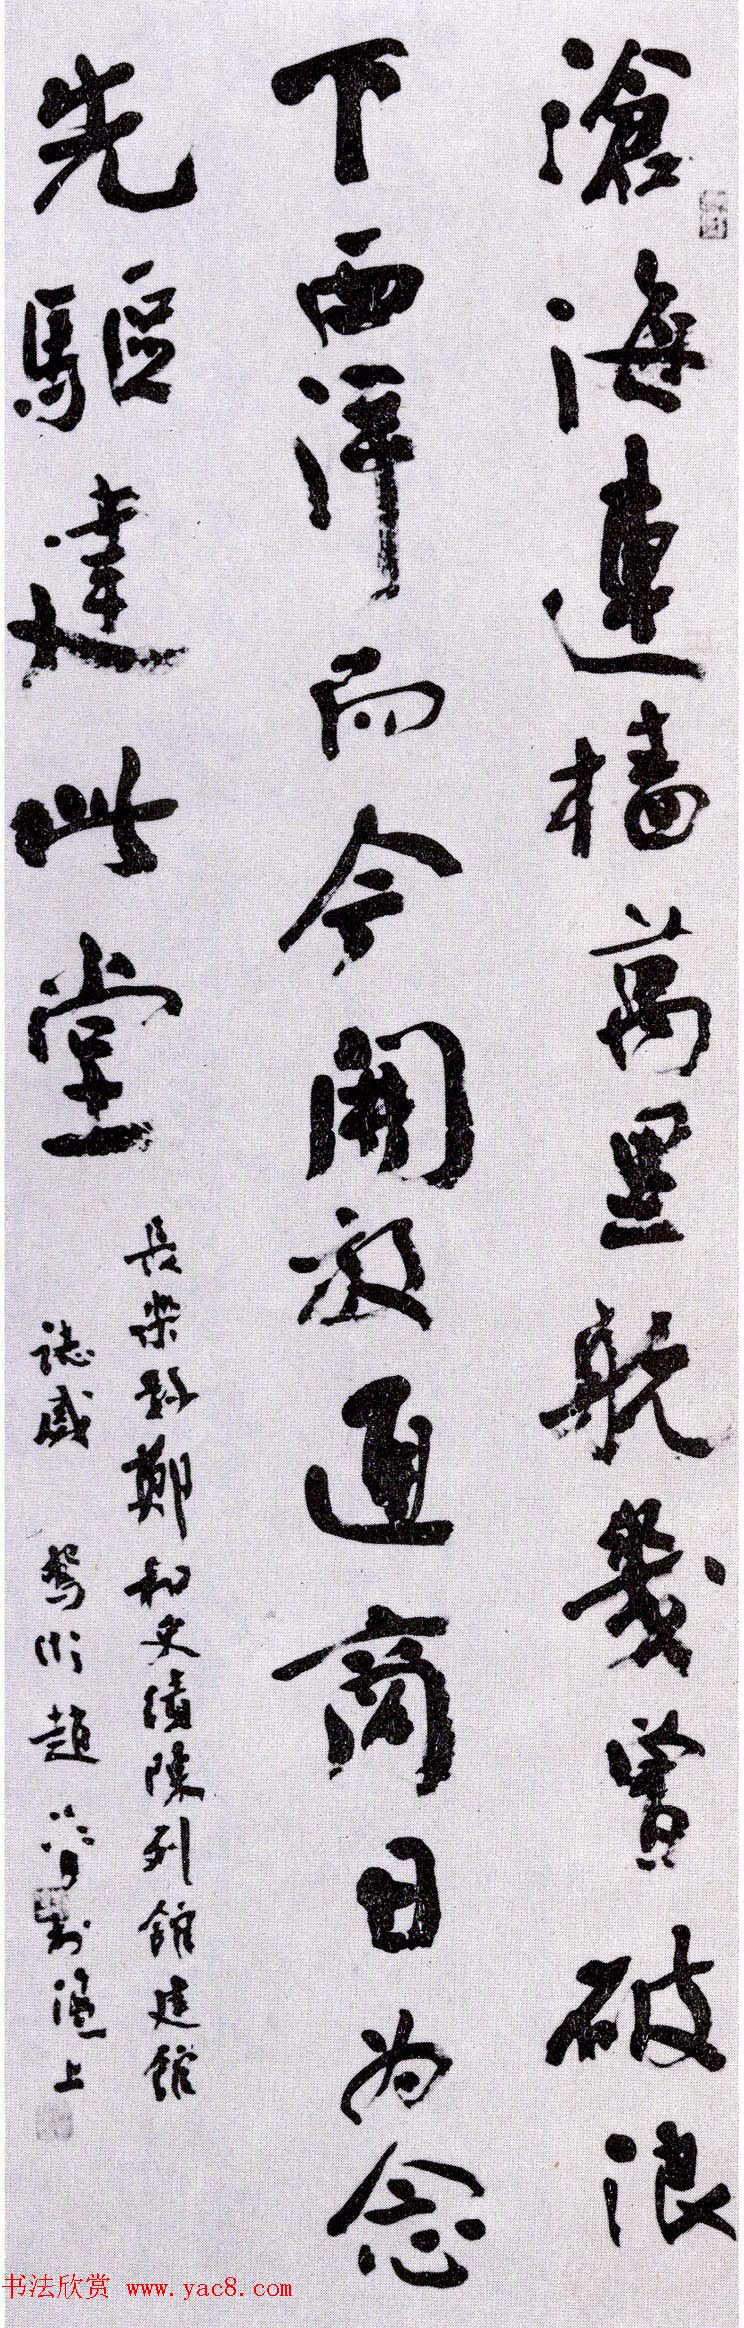 滄海連檣萬里航幾曾破浪
下西洋而今開放通商日為念
先驅建此堂
長樂縣鄭和史蹟陳列館建館
誌感 鴛湖趙冷月於滬上
书法欣赏 www.yac8.com